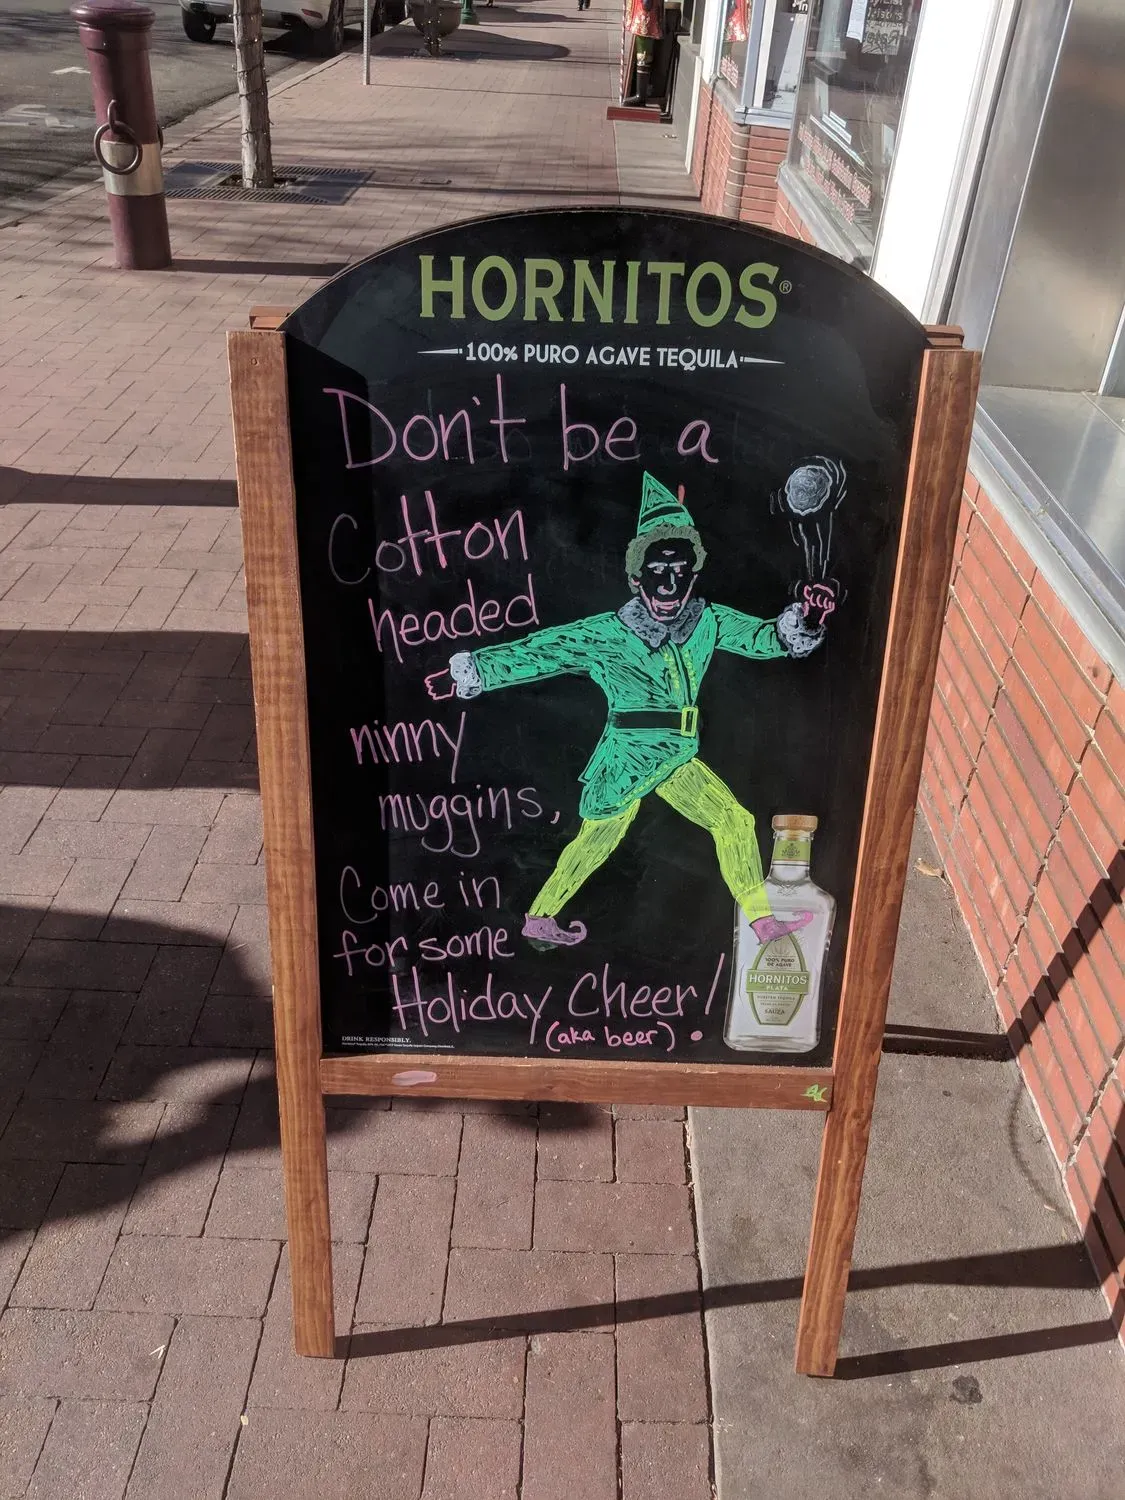 HORNITOS®
100% PURO AGAVE TEQUILA
Don't be a
Cotton
headed
ninny
muggins,
Come in
for some
Holiday Cheer!
(aka beer)
DRINK RESPONSIBLY.
100% PURO
DE AGAVE
HORNITOS
PLATA
SAUZA